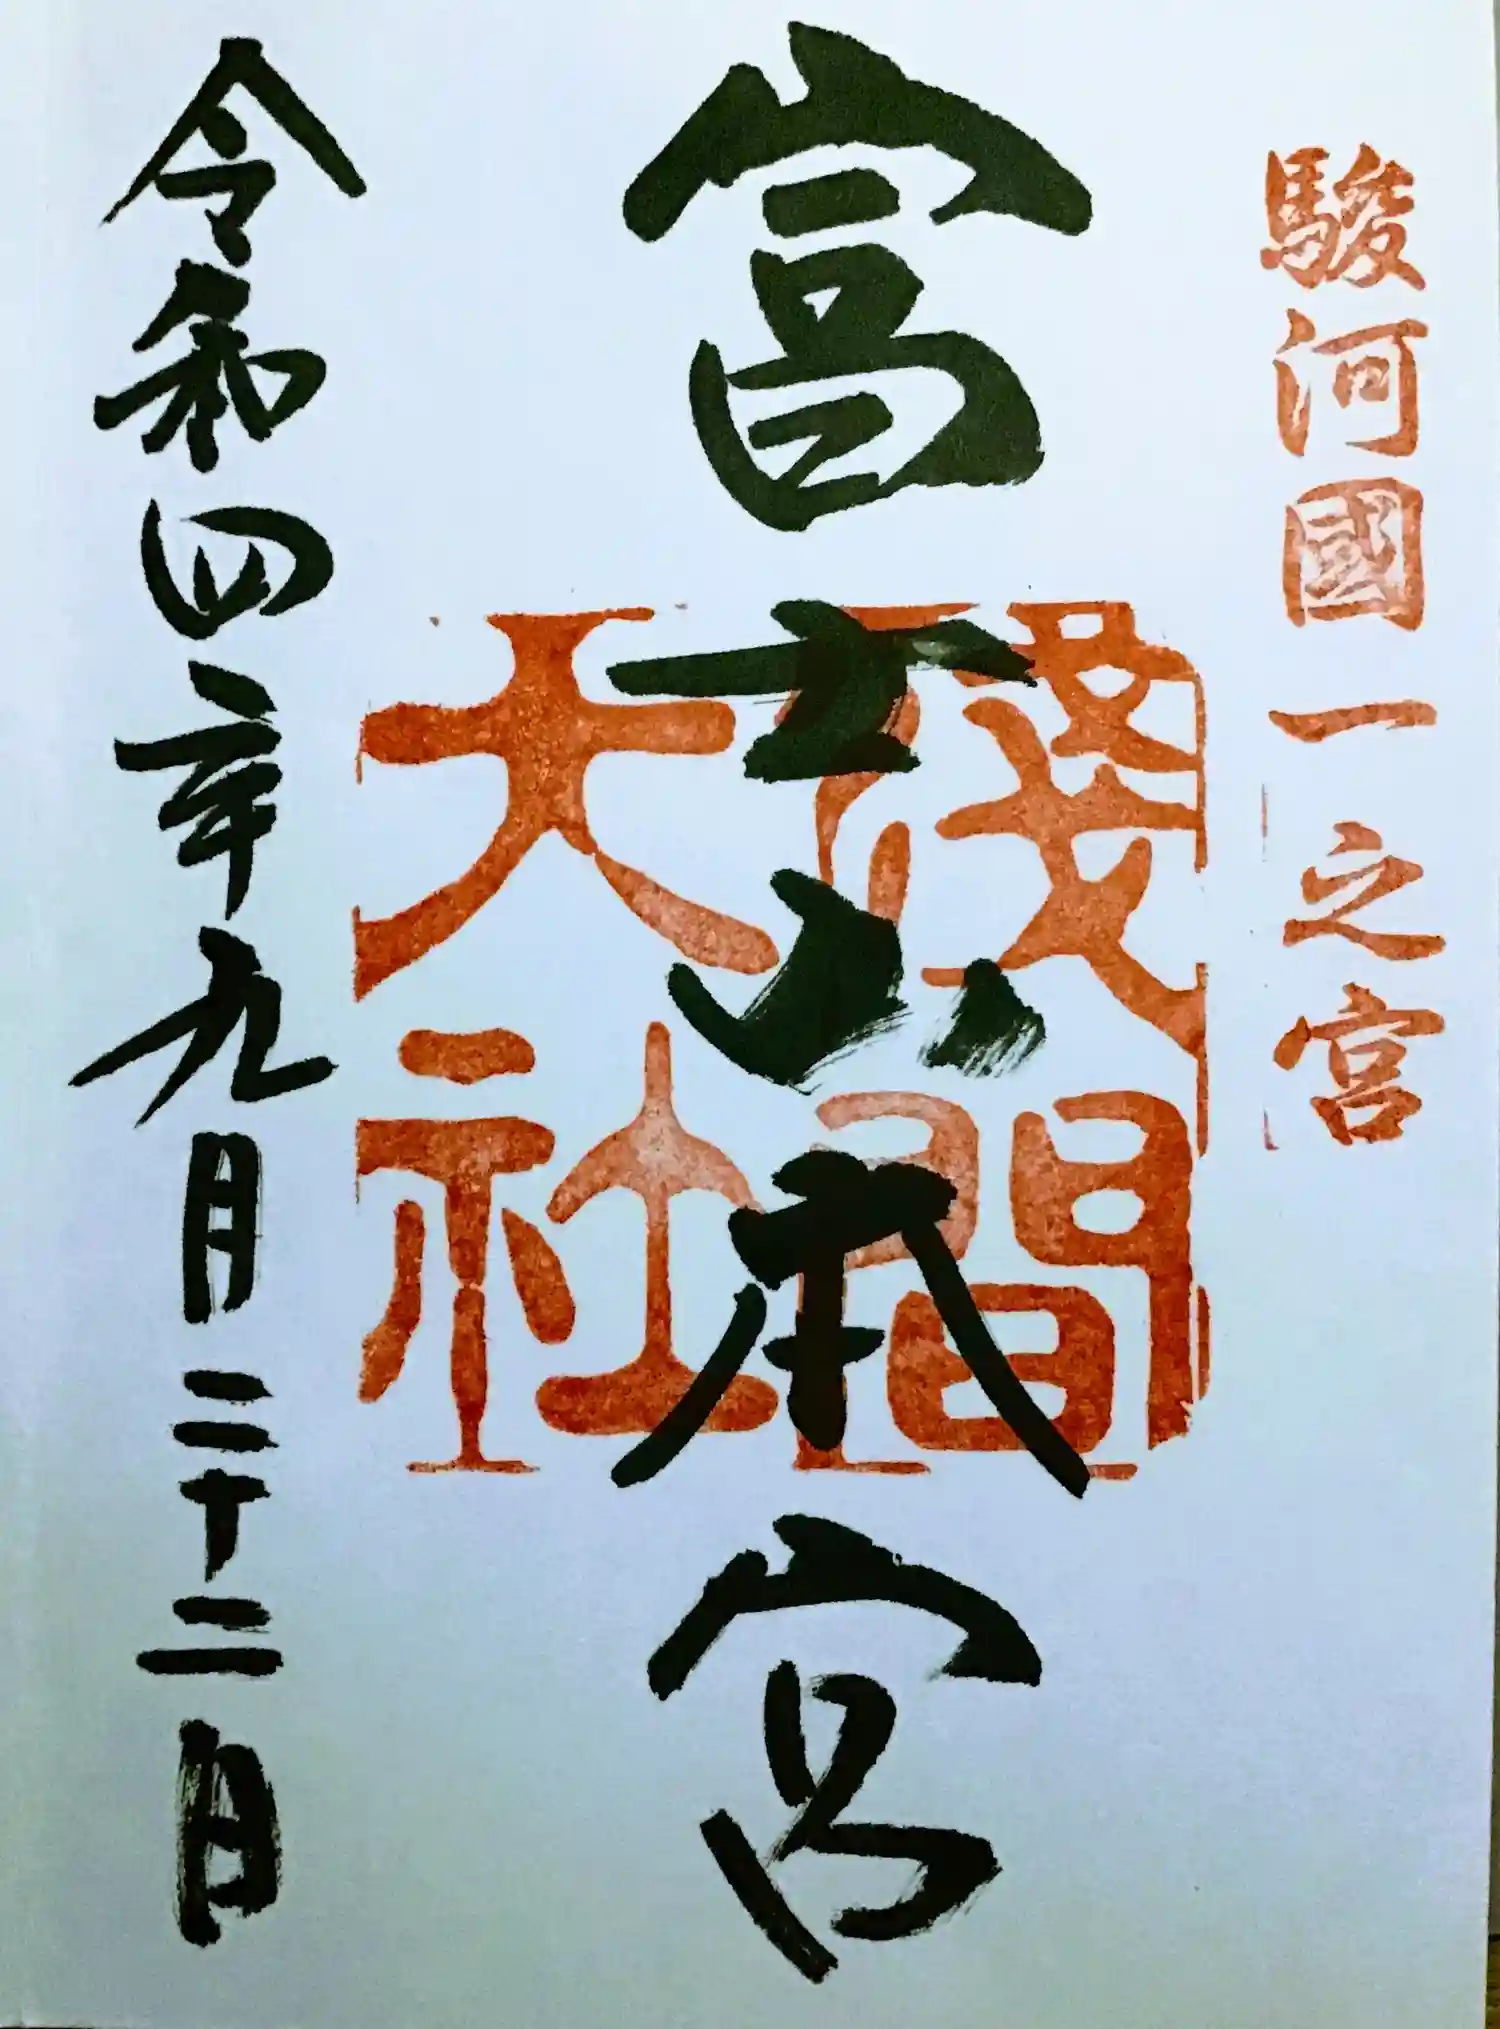 駿河國一之宮
富士山本宮
淺間大社
令和四年九月二十二日